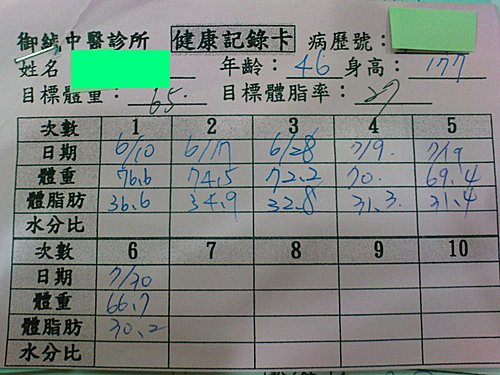 御絨中醫診所 健康記錄卡 病歷號：
姓名 年齡：46 身高：177
目標體重：65. 目標體脂率：27
次數 1 2 3 4 5
日期 6/10 6/17 6/28 7/9. 7/19
體重 76.6 74.5 72.2 70. 69.4
體脂肪 36.6 34.9 32.8 31.3. 31.4
水分比
次數 6 7 8 9 10
日期 7/30
體重 66.7
體脂肪 30.2
水分比